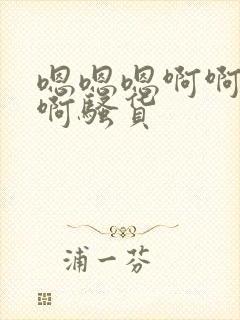 嗯嗯嗯啊啊
啊骚货
浦一芬